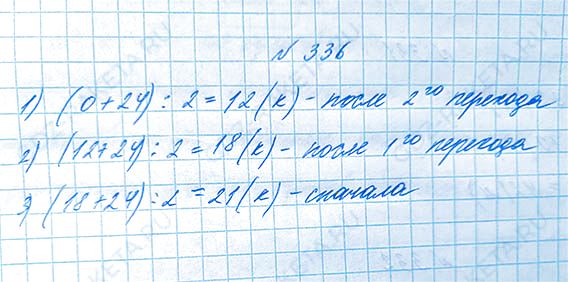 № 336
1) (0+24) : 2 = 12 (к) – после 2го перехода
2) (12+24) : 2 = 18 (к) – после 1го перехода
3) (18+24) : 2 = 21 (к) – сначала